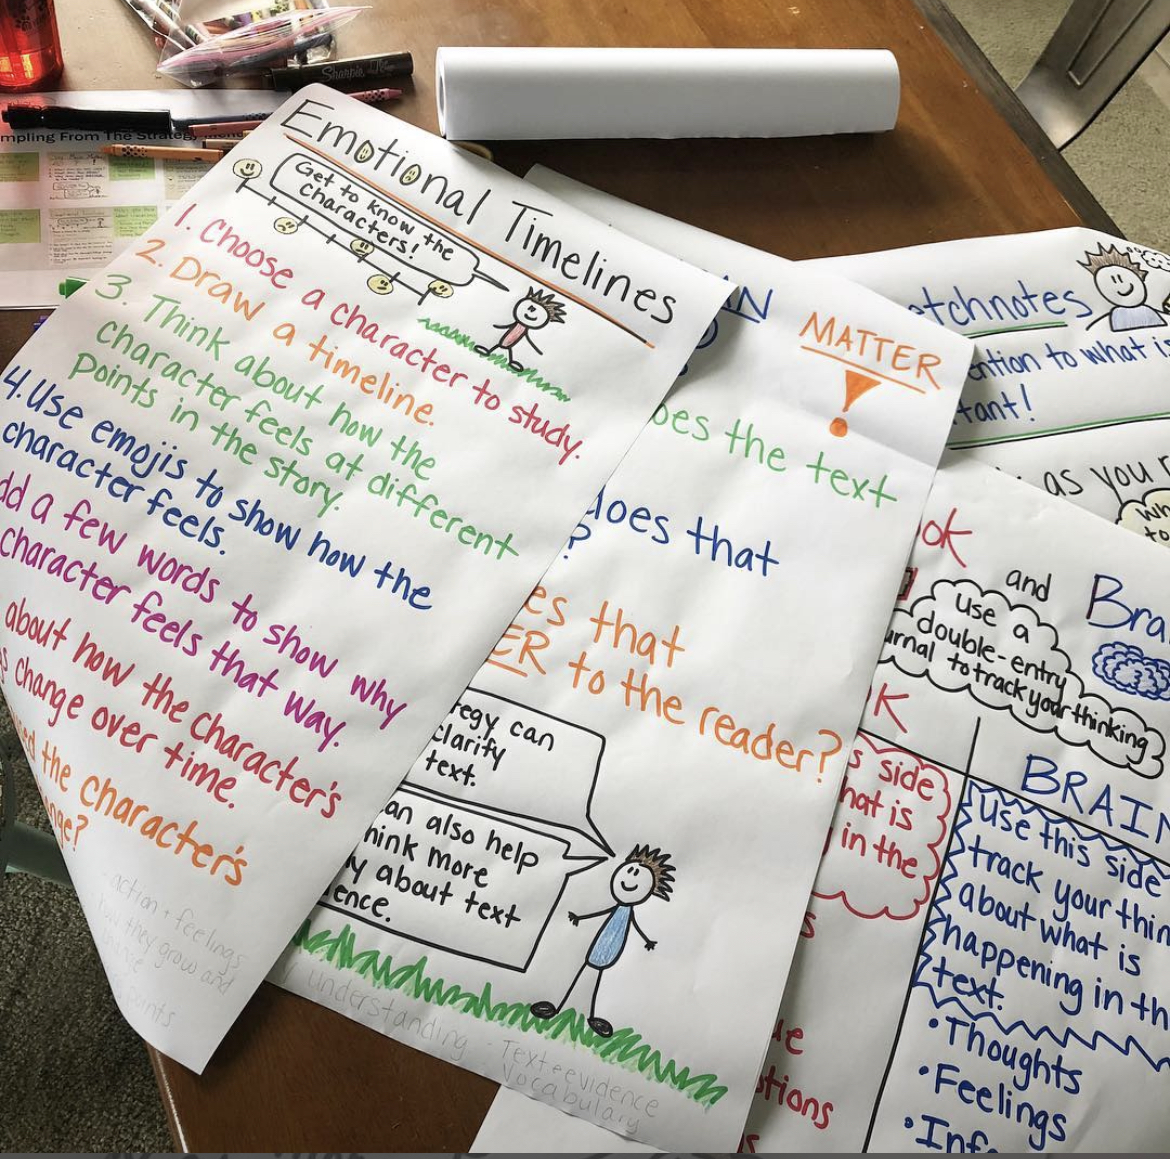 Sharpie
mpling From The Strategy
Emotional Timelines
Get to know the
characters!
1. Choose a character to study.
2. Draw a timeline.
3. Think about how the
character feels at different
points in the story.
4. Use emojis to show how the
character feels.
dd a few words to show why
character feels that way.
about how the character's
s change over time.
the character's
nge?
action + feelings
how they grow and
points
N
MATTER
!
oes the text
does that
?
es that
ER to the reader?
tegy can
clarify
text.
an also help
hink more
ly about text
ence.
understanding
- Text evidence
Vocabulary
etchnotes
ention to what is
tant!
as you r
wh
to
ok
and
Bra
Use a
double-entry
urnal to track your thinking
K
BRAIN
s side
hat is
in the
s
ue
otions
s
Use this side
track your thin
about what is
happening in th
text.
• Thoughts
• Feelings
• Infe